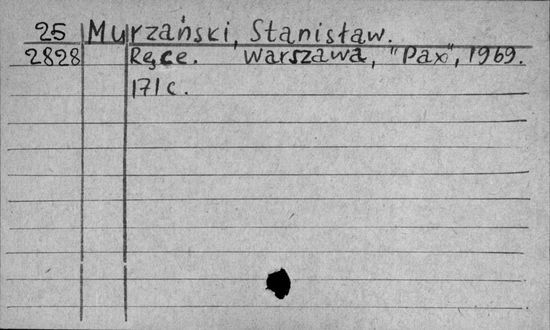 25 Murzański, Stanisław.
2828 Ręce. Warszawa, "Pax", 1969.
171 c.